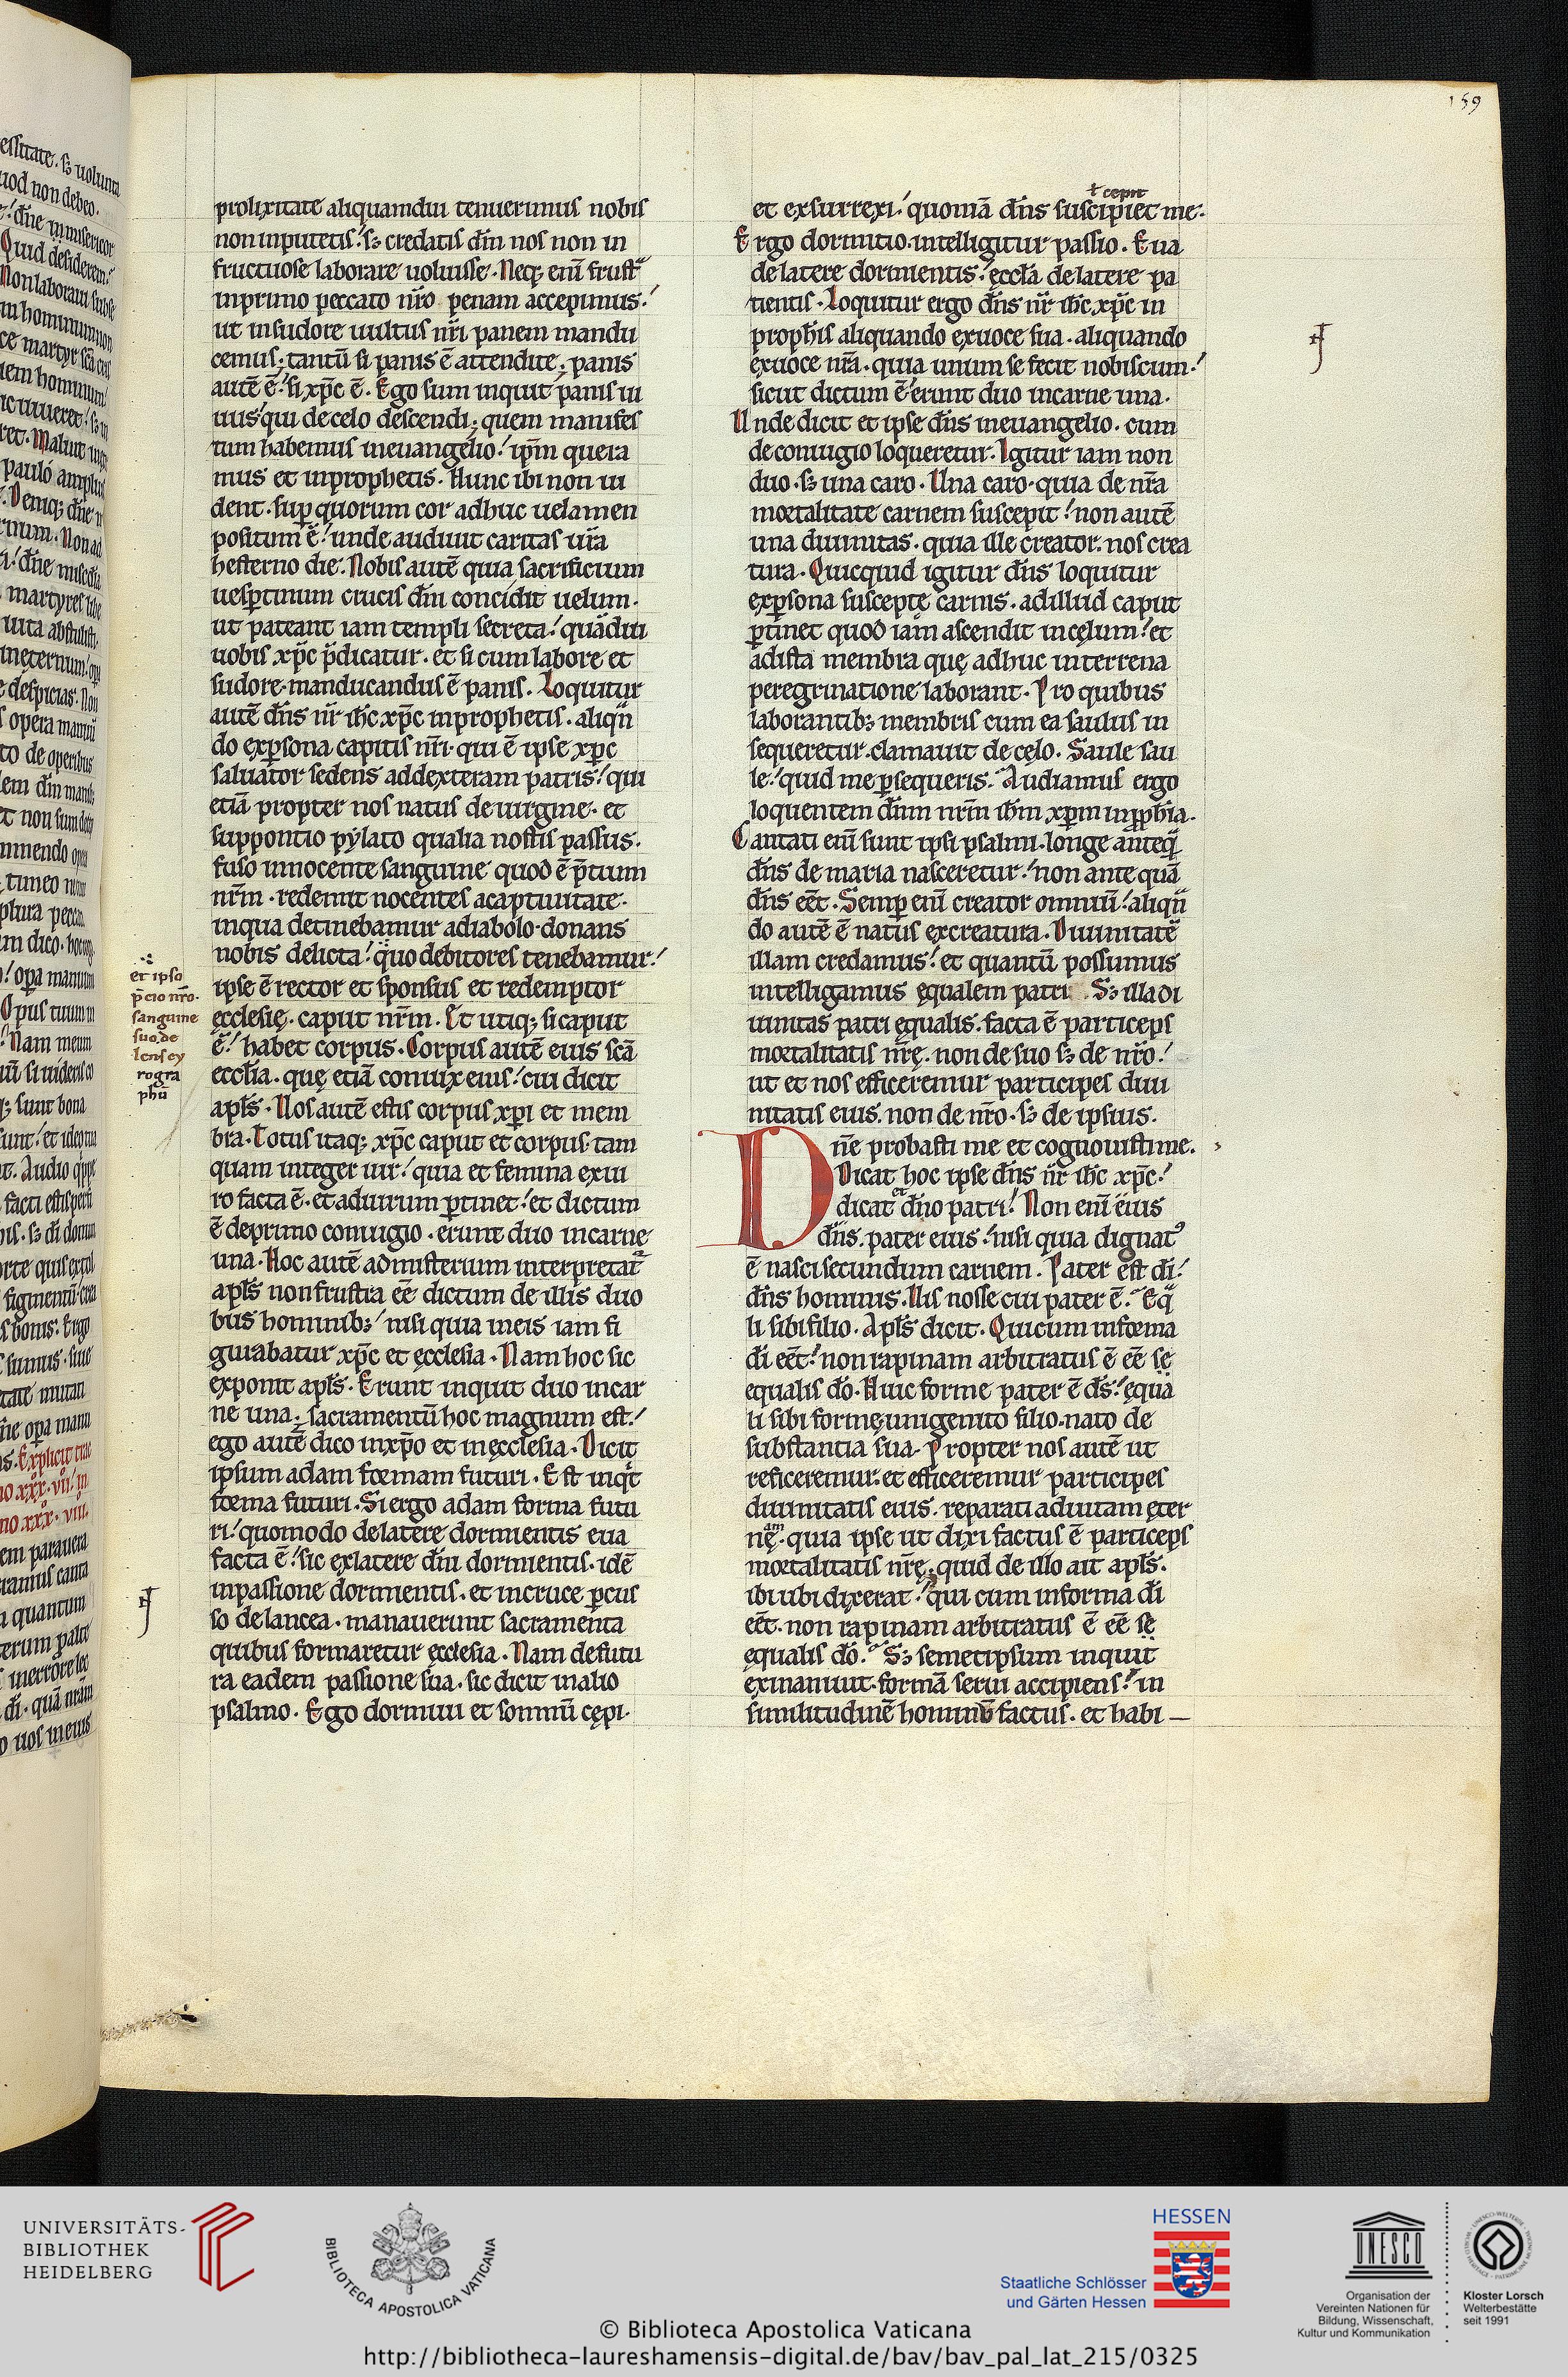 159
prolixitate aliquamdiu tenuerimus nobis
non inputetis. sꝫ credatis dm̄ nos non in
fructuose laborare uoluisse. Neqꝫ eni̅ frustᵃ
inprimo peccato nr̅o penam accepimus.
ut insudore uultus nr̅i panem mandu
cemus; tantu̅ si panis e̅ attendite; panis
aute̅ e̅. si xp̅c e̅. Ego sum inquit panis ui
uus qui decelo descendi; quem manifes
tum habemus ineuangelio. ip̅m quera
mus et inprophetis. Hunc ibi non ui
dent. suꝑ quorum cor adhuc uelamen
positum e̅. unde audiuit caritas ur̅a
hesterno die. Nobis aute̅ quia sacrificium
uesꝑtinum crucis dn̅i concidit uelum.
ut pateant iam templi secreta. qua̅diu
uobis xp̅c p̅dicatur. et si cum labore et
sudore manducandus e̅ panis. Loquitur
aute̅ dn̅s nr̅ ih̅c xp̅c inprophetis. aliqn̅
do exꝑsona capitis nr̅i. qui e̅ ipse xp̅c
saluator sedens addexteram patris. qui
etia̅ propter nos natus deuirgine. et
suppontio pylato qualia nostis passus.
fuso innocente sanguine quod e̅ p̅tium
nr̅m. redemit nocentes acaptiuitate.
inqua detinebamur adiabolo. donans
nobis delicta. quo debitores tenebamur.
et ipso
p̅cio nr̅o.
sanguine
suo. de
lens cy
rogra
phu̅
ipse e̅ rector et sponsus et redemptor
ecclesię. caput nr̅m. Et utiqꝫ si caput
e̅. habet corpus. Corpus aute̅ eius sc̅a
eccl̅ia. quę etia̅ coniunx eius. cui dicit
apl̅s. Uos aute̅ estis corpus xp̅i et mem
bra. Totus itaqꝫ xp̅c caput et corpus. tam
quam integer uir. quia et femina exui
ro facta e̅. et aduirum ꝑtinet. et dictum
e̅ deprimo coniugio. erunt duo incarne
una. Hoc aute̅ admisterium interpretat̅
apl̅s non frustra ee̅ dictum de illis duo
bus hominibꝫ nisi quia ineis iam fi
gurabatur xp̅c et ęcclesia. Nam hoc sic
exponit apl̅s. Erunt inquit duo incar
ne una; sacramentu̅ hoc magnum est.
ego aute̅ dico inxp̅o et inęcclesia. Dicit
ipsum adam formam futuri. Est inqͥt
forma futuri. Si ergo adam forma futu
ri. quomodo delatere dormientis eua
facta e̅. sic exlatere dn̅i dormientis. ide̅
inpassione dormientis. et incruce ꝑcus
so delancea. manauerunt sacramenta
quibus formaretur ęcclesia. Nam defutu
ra eadem passione sua. sic dicit inalio
psalmo. Ego dormiui et somnu̅ cępi.
ł cepit
et exsurrexi. quonia̅ dn̅s suscipiet me.
Ergo dormitio intelligitur passio. Eua
de latere dormientis. ęccl̅a de latere pa
tientis. Loquitur ergo dn̅s nr̅ ih̅c xp̅c in
proph̅is aliquando exuoce sua. aliquando
exuoce nr̅a. quia unum se fecit nobiscum.
sicut dictum e̅ erunt duo incarne una.
Unde dicit et ipse dn̅s ineuangelio. cum
deconiugio loqueretur. Igitur iam non
duo. sꝫ una caro. Una caro. quia de nr̅a
mortalitate carnem suscepit. non aute̅
una diuinitas. quia ille creator. nos crea
tura. Quicquid igitur dn̅s loquitur
exꝑsona susceptę carnis. ad illud caput
ꝑtinet quod iam ascendit incęlum. et
adista membra quę adhuc interrena
peregrinatione laborant. Pro quibus
laborantibꝫ membris cum ea saulus in
sequeretur. clamauit de cęlo. Saule sau
le. quid me ꝑsequeris. Audiamus ergo
loquentem dn̅m nr̅m ih̅m xp̅m inꝓph̅ia.
Cantati eni̅ sunt ipsi psalmi. longe anteq̅
dn̅s de maria nasceretur. non ante qua̅
dn̅s eēt. Semꝑ eni̅ creator omniu̅. aliqn̅
do aute̅ e̅ natus excreatura. Diuinitate̅
illam credamus. et quantu̅ possumus
intelligamus ęqualem patri. Sꝫ illa di
uinitas patri ęqualis. facta e̅ particeps
mortalitatis nr̅ę. non de suo sꝫ de nr̅o.
ut et nos efficeremur participes diui
nitatis eius. non de nr̅o. sꝫ de ipsius.
Dn̅e probasti me et cognouisti me.
Dicat hoc ipse dn̅s nr̅ ih̅c xp̅c.
dicat et dn̅o patri. Non eni̅ eius
dn̅s. pater eius. nisi quia dignatꝰ
e̅ nasci secundum carnem. Pater est di̅.
dn̅s hominis. Uis nosse cui pater e̅. Eq̅
li sibi filio. Apl̅s dicit. Qui cum informa
di̅ eēt. non rapinam arbitratus e̅ ee̅ sę
equalis do̅. Huic forme pater e̅ ds̅. ęqua
li sibi formę unigenito filio. nato de
substantia sua. Propter nos aute̅ ut
reficeremur. et efficeremur participes
diuinitatis eius. reparati aduitam ęter
nę. quia ipse ut dixi factus e̅ particeps
mortalitatis nr̅ę. quid de illo ait apl̅s.
ibi ubi dixerat. qui cum informa di̅
eēt. non rapinam arbitratus e̅ ee̅ sę
ęqualis do̅. Sꝫ semetipsum inquit
exinaniuit. forma̅ serui accipiens. in
similitudine̅ hominu̅ factus. et habi
UNIVERSITÄTS-
BIBLIOTHEK
HEIDELBERG
BIBLIOTECA APOSTOLICA VATICANA
HESSEN
Staatliche Schlösser
und Gärten Hessen
UNESCO
Organisation der
Vereinten Nationen für
Bildung, Wissenschaft,
Kultur und Kommunikation
Kloster Lorsch
Welterbestätte
seit 1991
© Biblioteca Apostolica Vaticana
http://bibliotheca-laureshamensis-digital.de/bav/bav_pal_lat_215/0325